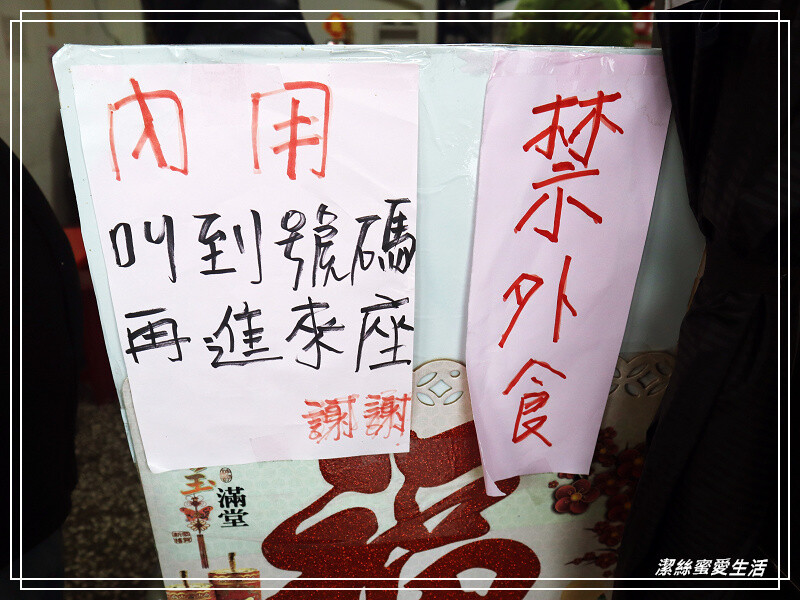 內用
叫到號碼
再進來座
謝謝
禁外食
玉
滿堂
福
潔絲蜜愛生活